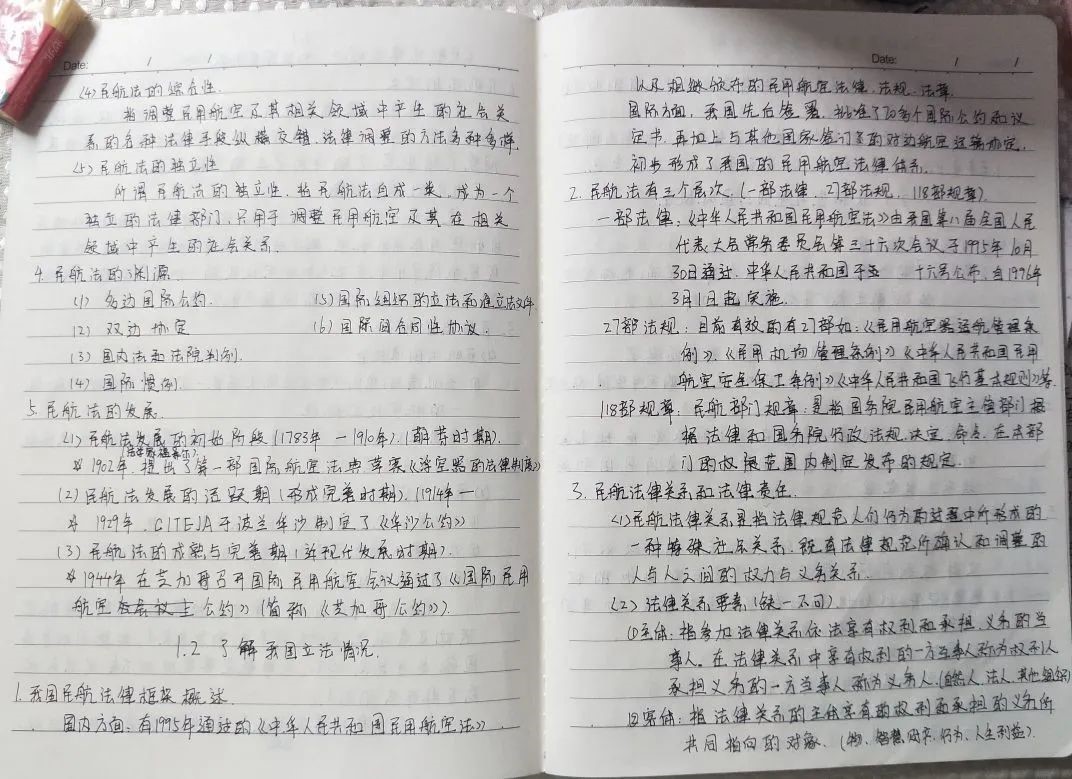 Date: / /
(4)民航法的综合性.
指调整民用航空及其相关领域中产生的社会关
系的各种法律手段纵横交错、法律调整的方法多种多样.
(5)民航法的独立性
所谓民航法的独立性.指民航法自成一类,成为一个
独立的法律部门,只用于调整民用航空及其在相关
领域中产生的社会关系.
4.民航法的渊源.
(1) 多边国际公约. (5)国际组织的立法和准立法文件
(2) 双边协定 (6)国际间合同性协议.
(3)国内法和法院判例.
(4)国际惯例.
5.民航法的发展.
(1)民航法发展的初始阶段(1783年—1910年).(萌芽时期).
*1902年,提出了第一部国际航空法典草案《浮空器的法律制度》
(2)民航法发展的活跃期(形成完善时期).(1914年—
* 1929年, CITEJA于波兰华沙制定了《华沙公约》
(3)民航法的成熟与完善期(近现代发展时期).
*1944年在芝加哥召开国际民用航空会议通过了《国际民用
航空 公约》(简称《芝加哥公约》).
1.2 了解我国立法情况.
1.我国民航法律框架概述.
国内方面:有1995年通过的《中华人民共和国民用航空法》
Date: / /
以及相继颁布的民用航空法律、法规、法章.
国际方面,我国先后签署、批准了20多个国际公约和议
定书,再加上与其他国家签订多的双边航空运输协定,
初步形成了我国的民用航空法律体系.
2.民航法有三个层次.(一部法律,27部法规,118部规章).
一部法律:《中华人民共和国民用航空法》由我国第八届全国人民
代表大会常务委员会第三十六次会议于1995年10月
30日通过.中华人民共和国 十六号公布,自1996年
3月1日起实施.
27部法规:目前有效的有27部如:《民用航空器适航管理条
例》.《民用机场管理条例》《中华人民共和国民用
航空安全保卫条例》《中华人民共和国飞行基本规则》等.
118部规章:民航部门规章:是指国务院民用航空主管部门根
据法律和国务院行政法规.决定.命令.在本部
门的权限范围内制定发布的规定.
3.民航法律关系和法律责任.
(1)民航法律关系是指法律规范人们行为的过程中所形成的
一种特殊社会关系.既有法律规范所确认和调整的
人与人之间的权力与义务关系.
(2) 法律关系要素(缺一不可).
①主体:指参加法律关系依法享有权利和承担义务的当
事人.在法律关系中享有权利的一方当事人称为权利人
承担义务的一方当事人称为义务人.(自然人.法人.其他组织)
②客体:指法律关系的主体享有的权利和承担的义务所
共同指向的对象.(物、智慧财产.行为、人生利益).